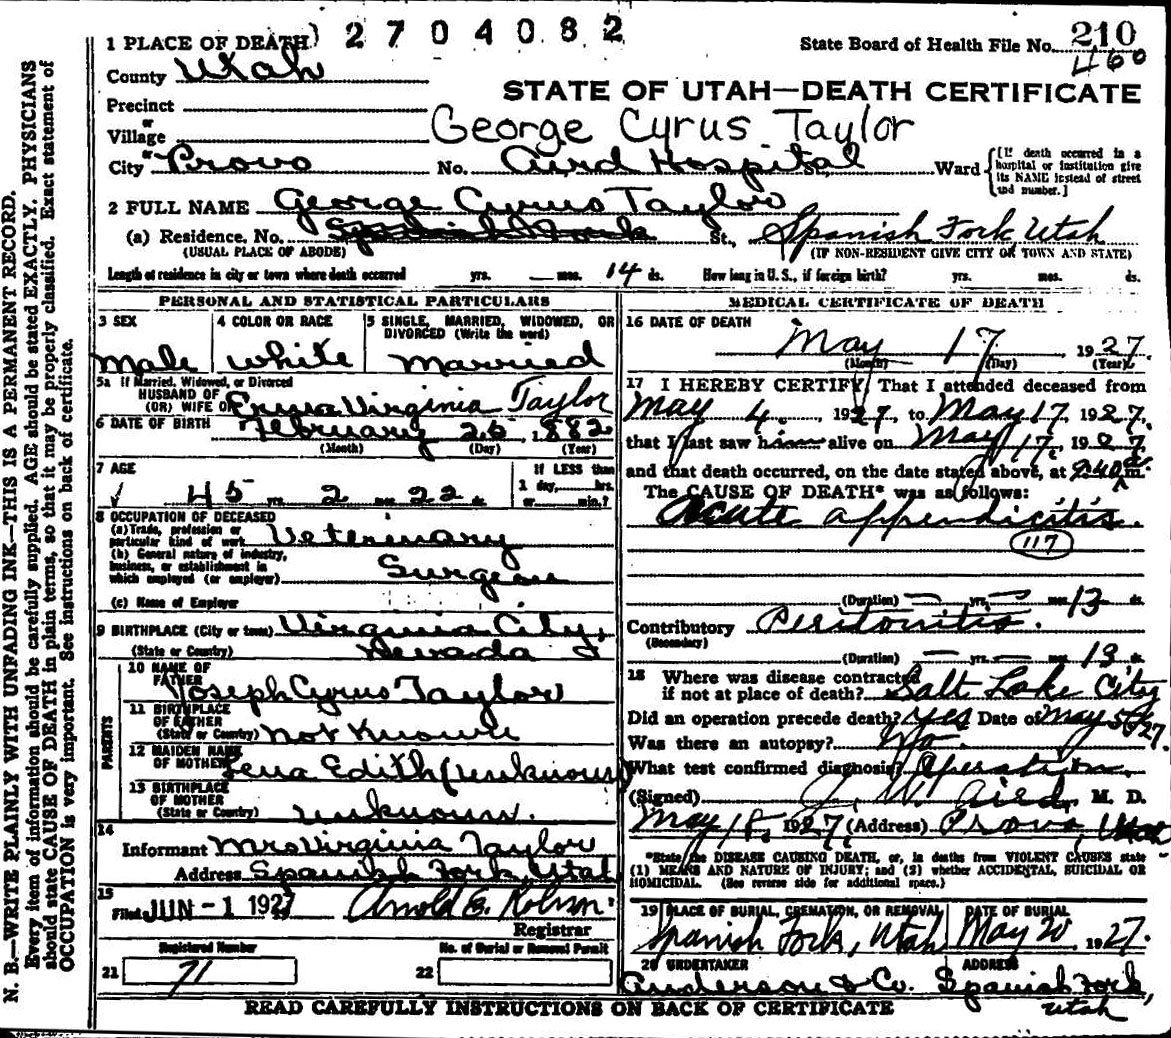 2704082
1 PLACE OF DEATH)
State Board of Health File No. 210
460
County Utah
STATE OF UTAH—DEATH CERTIFICATE
Precinct
or
Village
George Cyrus Taylor
or
City Provo No. Aird Hospital St., Ward
[If death occurred in a hospital or institution give its NAME instead of street and number.]
2 FULL NAME George Cyrus Taylor
(a) Residence. No. Spanish Fork St., Spanish Fork, Utah
(USUAL PLACE OF ABODE) (IF NON-RESIDENT GIVE CITY OR TOWN AND STATE)
Length of residence in city or town where death occurred yrs. — mos. 14 ds. How long in U. S., if foreign birth? yrs. mos. ds.
PERSONAL AND STATISTICAL PARTICULARS
3 SEX
Male
4 COLOR OR RACE
White
5 SINGLE, MARRIED, WIDOWED, OR DIVORCED (Write the word)
Married
5a If Married, Widowed, or Divorced
HUSBAND OF
(OR) WIFE OF Virginia Taylor
6 DATE OF BIRTH February 25 1882
(Month) (Day) (Year)
7 AGE
45 yrs. 2 mos. 22 ds.
If LESS than
1 day, hrs.
or min.?
8 OCCUPATION OF DECEASED
(a) Trade, profession or
particular kind of work Veterinary
(b) General nature of industry,
business, or establishment in
which employed (or employer) Surgeon
(c) Name of Employer
9 BIRTHPLACE (City or town) Virginia City,
(State or Country) Nevada
PARENTS
10 NAME OF
FATHER Joseph Cyrus Taylor
11 BIRTHPLACE
OF FATHER
(State or Country) Not Known
12 MAIDEN NAME
OF MOTHER Lena Edith (unknown)
13 BIRTHPLACE
OF MOTHER
(State or Country) unknown.
14
Informant Mrs Virginia Taylor
Address Spanish Fork, Utah
15
Filed JUN - 1 1927 Arnold E.
Registrar
Registered Number
21 71
No. of Burial or Removal Permit
22
MEDICAL CERTIFICATE OF DEATH
16 DATE OF DEATH
May 17 1927.
(Month) (Day) (Year)
17 I HEREBY CERTIFY, That I attended deceased from
May 4, 1927, to May 17, 1927,
that I last saw him alive on May 17, 1927,
and that death occurred, on the date stated above, at 9:40 m.
The CAUSE OF DEATH* was as follows:
Acute appendicitis.
117
(Duration) — yrs. — mos. 13 ds.
Contributory Peritonitis.
(Secondary)
(Duration) — yrs. — mos. 13 ds.
18 Where was disease contracted
if not at place of death? Salt Lake City
Did an operation precede death? Yes Date of May 5, 27
Was there an autopsy? No.
What test confirmed diagnosis? Operation.
(Signed) J. W. Aird, M. D.
May 18, 1927, (Address) Provo, Utah
*State the DISEASE CAUSING DEATH, or, in deaths from VIOLENT CAUSES state
(1) MEANS AND NATURE OF INJURY; and (2) whether ACCIDENTAL, SUICIDAL OR
HOMICIDAL. (See reverse side for additional space.)
19 PLACE OF BURIAL, CREMATION, OR REMOVAL
Spanish Fork, Utah
DATE OF BURIAL
May 20, 1927.
20 UNDERTAKER
Anderson & Co.
ADDRESS
Spanish Fork,
Utah
READ CAREFULLY INSTRUCTIONS ON BACK OF CERTIFICATE
N. B.—WRITE PLAINLY WITH UNFADING INK—THIS IS A PERMANENT RECORD.
Every item of information should be carefully supplied. AGE should be stated EXACTLY. PHYSICIANS
should state CAUSE OF DEATH in plain terms, so that it may be properly classified. Exact statement of
OCCUPATION is very important. See instructions on back of certificate.